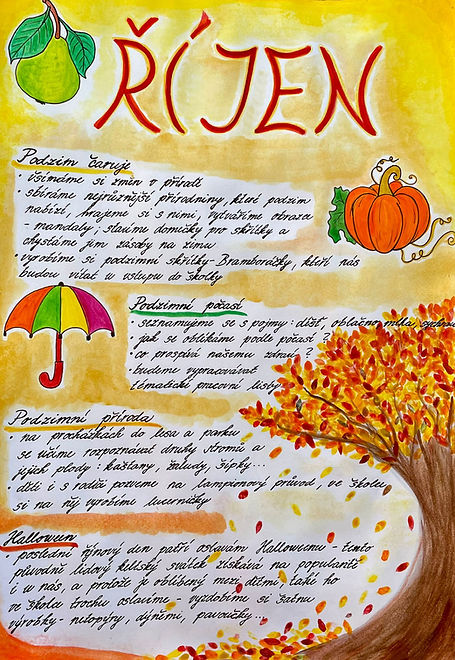 ŘÍJEN
Podzim čaruje
• všímáme si změn v přírodě
• sbíráme nejrůznější přírodniny, které podzim
nabízí, hrajeme si s nimi, vytváříme obrazce
- mandaly; stavíme domečky pro skřítky a
chystáme jim zásoby na zimu
• vyrobíme si podzimní skřítky - Bramboráčky, kteří nás
budou vítat u vstupu do školky
Podzimní počasí
• seznamujeme se s pojmy: déšť, oblačno, mlha,
• jak se oblékáme podle počasí?
• co prospívá našemu zdraví?
budeme vypracovávat
tématické pracovní listy
Podzimní příroda
• na procházkách do lesa a parku
se učíme rozpoznávat druhy stromů a
jejich plody: kaštany, žaludy, šípky...
děti i s rodiči pozveme na lampionový průvod, ve školce
si na něj vyrobíme lucerničky
Halloween
poslední říjnový den patří oslavám Halloweenu - tento
původně lidový keltský svátek získává na popularitě
i u nás, a protože je oblíbený mezi dětmi, také ho
ve školce trochu oslavíme - vyzdobíme si šatnu
výrobky - netopýry, dýněmi, pavoučky...